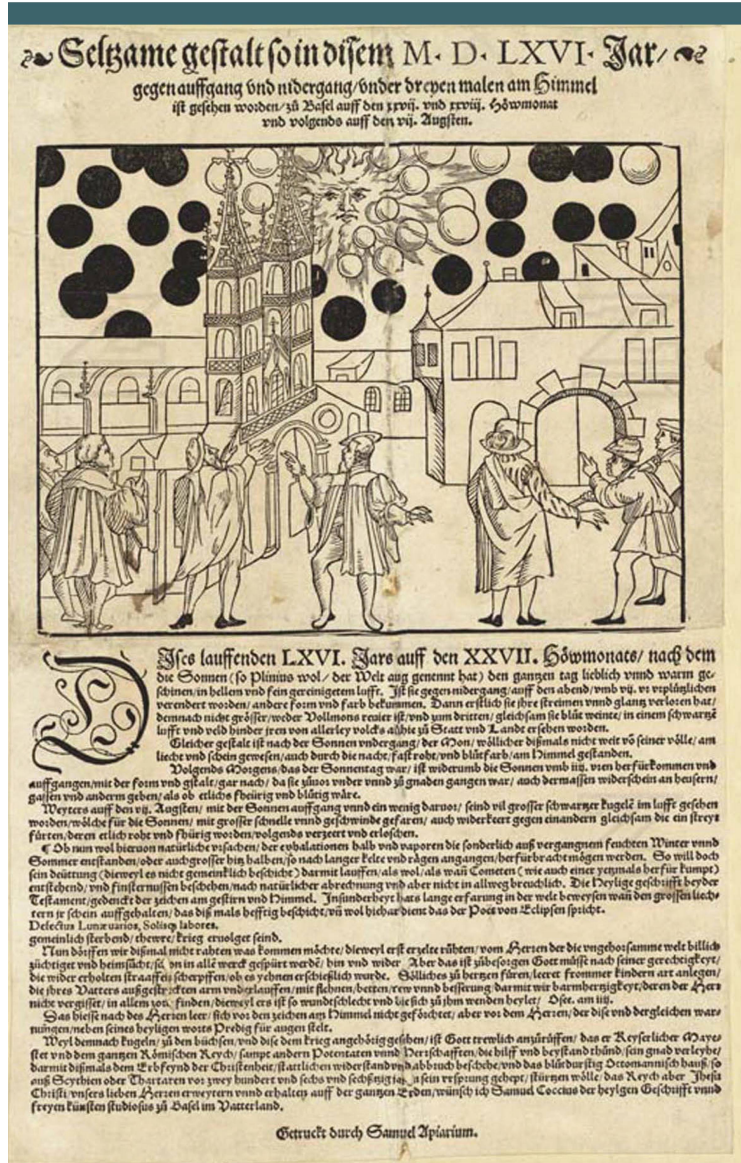 Seltzame gestalt so in disem M. D. LXVI. Jar/
gegen auffgang vnd nidergang/vnder dreyen malen am Himmel
ist gesehen worden/zů Basel auff den xxvij. vnd xxviij. Höwmonat
vnd volgends auff den vij. Augsten.
DJses lauffenden LXVI. Jars auff den XXVII. Höwmonats/ nach dem
die Sonnen (so Plinius wol/ der Welt aug genennt hat) den gantzen tag lieblich vnnd warm ge-
schinen/in hellem vnd fein gereinigetem lufft. Ist sie gegen nidergang/auff den abend/vmb vij. vr vrplützlichen
verendert worden/ andere form vnd farb bekummen. Dann erstlich sie jhre streimen vnnd glantz verloren hat/
demnach nicht grösser/weder Vollmons ist/vnd zum dritten/ gleichsam sie blůt weinte/ in einem schwartzē
lufft vnd veld hinder jren von allerley volcks zů Statt vnd Landt ersehen worden.
Gleicher gestalt ist nach der Sonnen vndergang/der Mon/ wöllicher dißmals nicht weit vō seiner völle/ am
liecht vnd schein gewesen/auch durch die nacht/fast roht/vnd blůtfarb/am Himmel gestanden.
Volgends Morgens/das der Sonnentag war/ ist widerumb die Sonnen vmb iiij. vren herfürkommen vnd
auffgangen/mit der form vnd gstalt/gar nach/ da sie zůuor vnder vnnd zu gnaden gangen war/ auch dermassen widerschein an heusern/
gassen vnd anderm geben/als ob etlichs fheürig vnd blůtig wäre.
Weyters auff den vij. Augsten/ mit der Sonnen auffgang vnnd ein wenig daruor/ seind vil grosser schwartzer kugelē im lufft gesehen
worden/wölche für die Sonnen/ mit grosser schnelle vnnd geschwinde gefaren/ auch widerkeert gegen einandern gleichsam die ein streyt
fürten/deren etlich roht vnd fhürig worden/volgends verzeert vnd erloschen.
¶ Ob nun wol hieruon natürliche vrsachen/ der exhalationen halb vnd vaporen die sonderlich auß vergangnem feuchten Winter vnnd
Sommer entstanden/oder auch grosser hitz halben/so nach langer kelte vnd rägen angangen/herfürbracht mögen werden. So will doch
sein deüttung (dieweyl es nicht gemeinklich beschicht) darmit lauffen/als wol/als wañ Cometen (wie auch einer yetzmals herfür kumpt)
entstehend/vnd finsternussen beschehen/nach natürlicher abrechnung vnd aber nicht in allweg breuchlich. Die Heylige geschrifft beyder
Testament/gedenckt der zeichen am gestirn vnd Himmel. Insunderheyt hats lange erfarung in der welt beweysen wañ den grossen liech-
tern jr schein auffgehalten/das diß mals hefftig beschicht/vñ wol hiehar dient das der Poet von Eclipsen spricht.
Defectus Lunæ uarios, Solisq; labores.
gemeinlich sterbend/thewre/krieg eruolget seind.
Nun dörffen wir dißmal nicht rahten was kommen möchte/dieweyl erst erzelte růhten/ vom Herren der die vngehorsamme welt billich
züchtiget vnd heimsůcht/ vn in allē werck gespürt werdē/ hin vnd wider. Aber das ist zübesorgen Gott müsse nach seiner gerechtigkeyt/
die wider erholten straaffen scherpffen/ob es yehnen erschießlich wurde. Sölliches zů hertzen füren/leeret frommer kindern art anlegen/
die jhres Vatters außgestreckten arm vnderlauffen/mit flehnen/betten/rew vnnd besserung/darmit wir barmhertzigkeyt/deren der Herr
nicht vergisset/ in allem zorn finden/dieweyl ers ist so wundeschlecht vnd ließ sich zů jhm wenden heylet/ Osee. am iiij.
Das hiesse nach des Herren leer/ sich vor den zeichen am Himmel nicht geförchtet/ aber vor dem Herren/der dise vnd dergleichen war-
nungen/neben seines heyligen worts Predig für augen stelt.
Weyl demnach kugeln/ zů den büchsen/vnd dise dem krieg angehörig gesehen/ist Gott trewlich anzůrüffen/das er Keyserlicher Maye-
stet vnd dem gantzen Römischen Reych/ sampt andern Potentaten vnnd Herrschafften/die hilff vnd beystand thünd/sein gnad verleyhe/
darmit dißmals dem Erbfeynd der Christenheit/stattlichen widerstand vnd abbruch beschehe/vnd das blůtdurstig Ottomannisch hauß/so
auß Scythien oder Thartaren vor zwey hundert vnd sechs vnd sechßzig sein vrsprung gehept/ stürtzen wölle/das Reych aber Jhesu
Christi/vnsers lieben Herren erweytern vnnd erhalten auff der gantzen Erden/wünsch ich Samuel Coccius der heylgen Geschrifft vnnd
freyen künsten studiosus zů Basel im Vatterland.
Getruckt durch Samuel Apiarium.